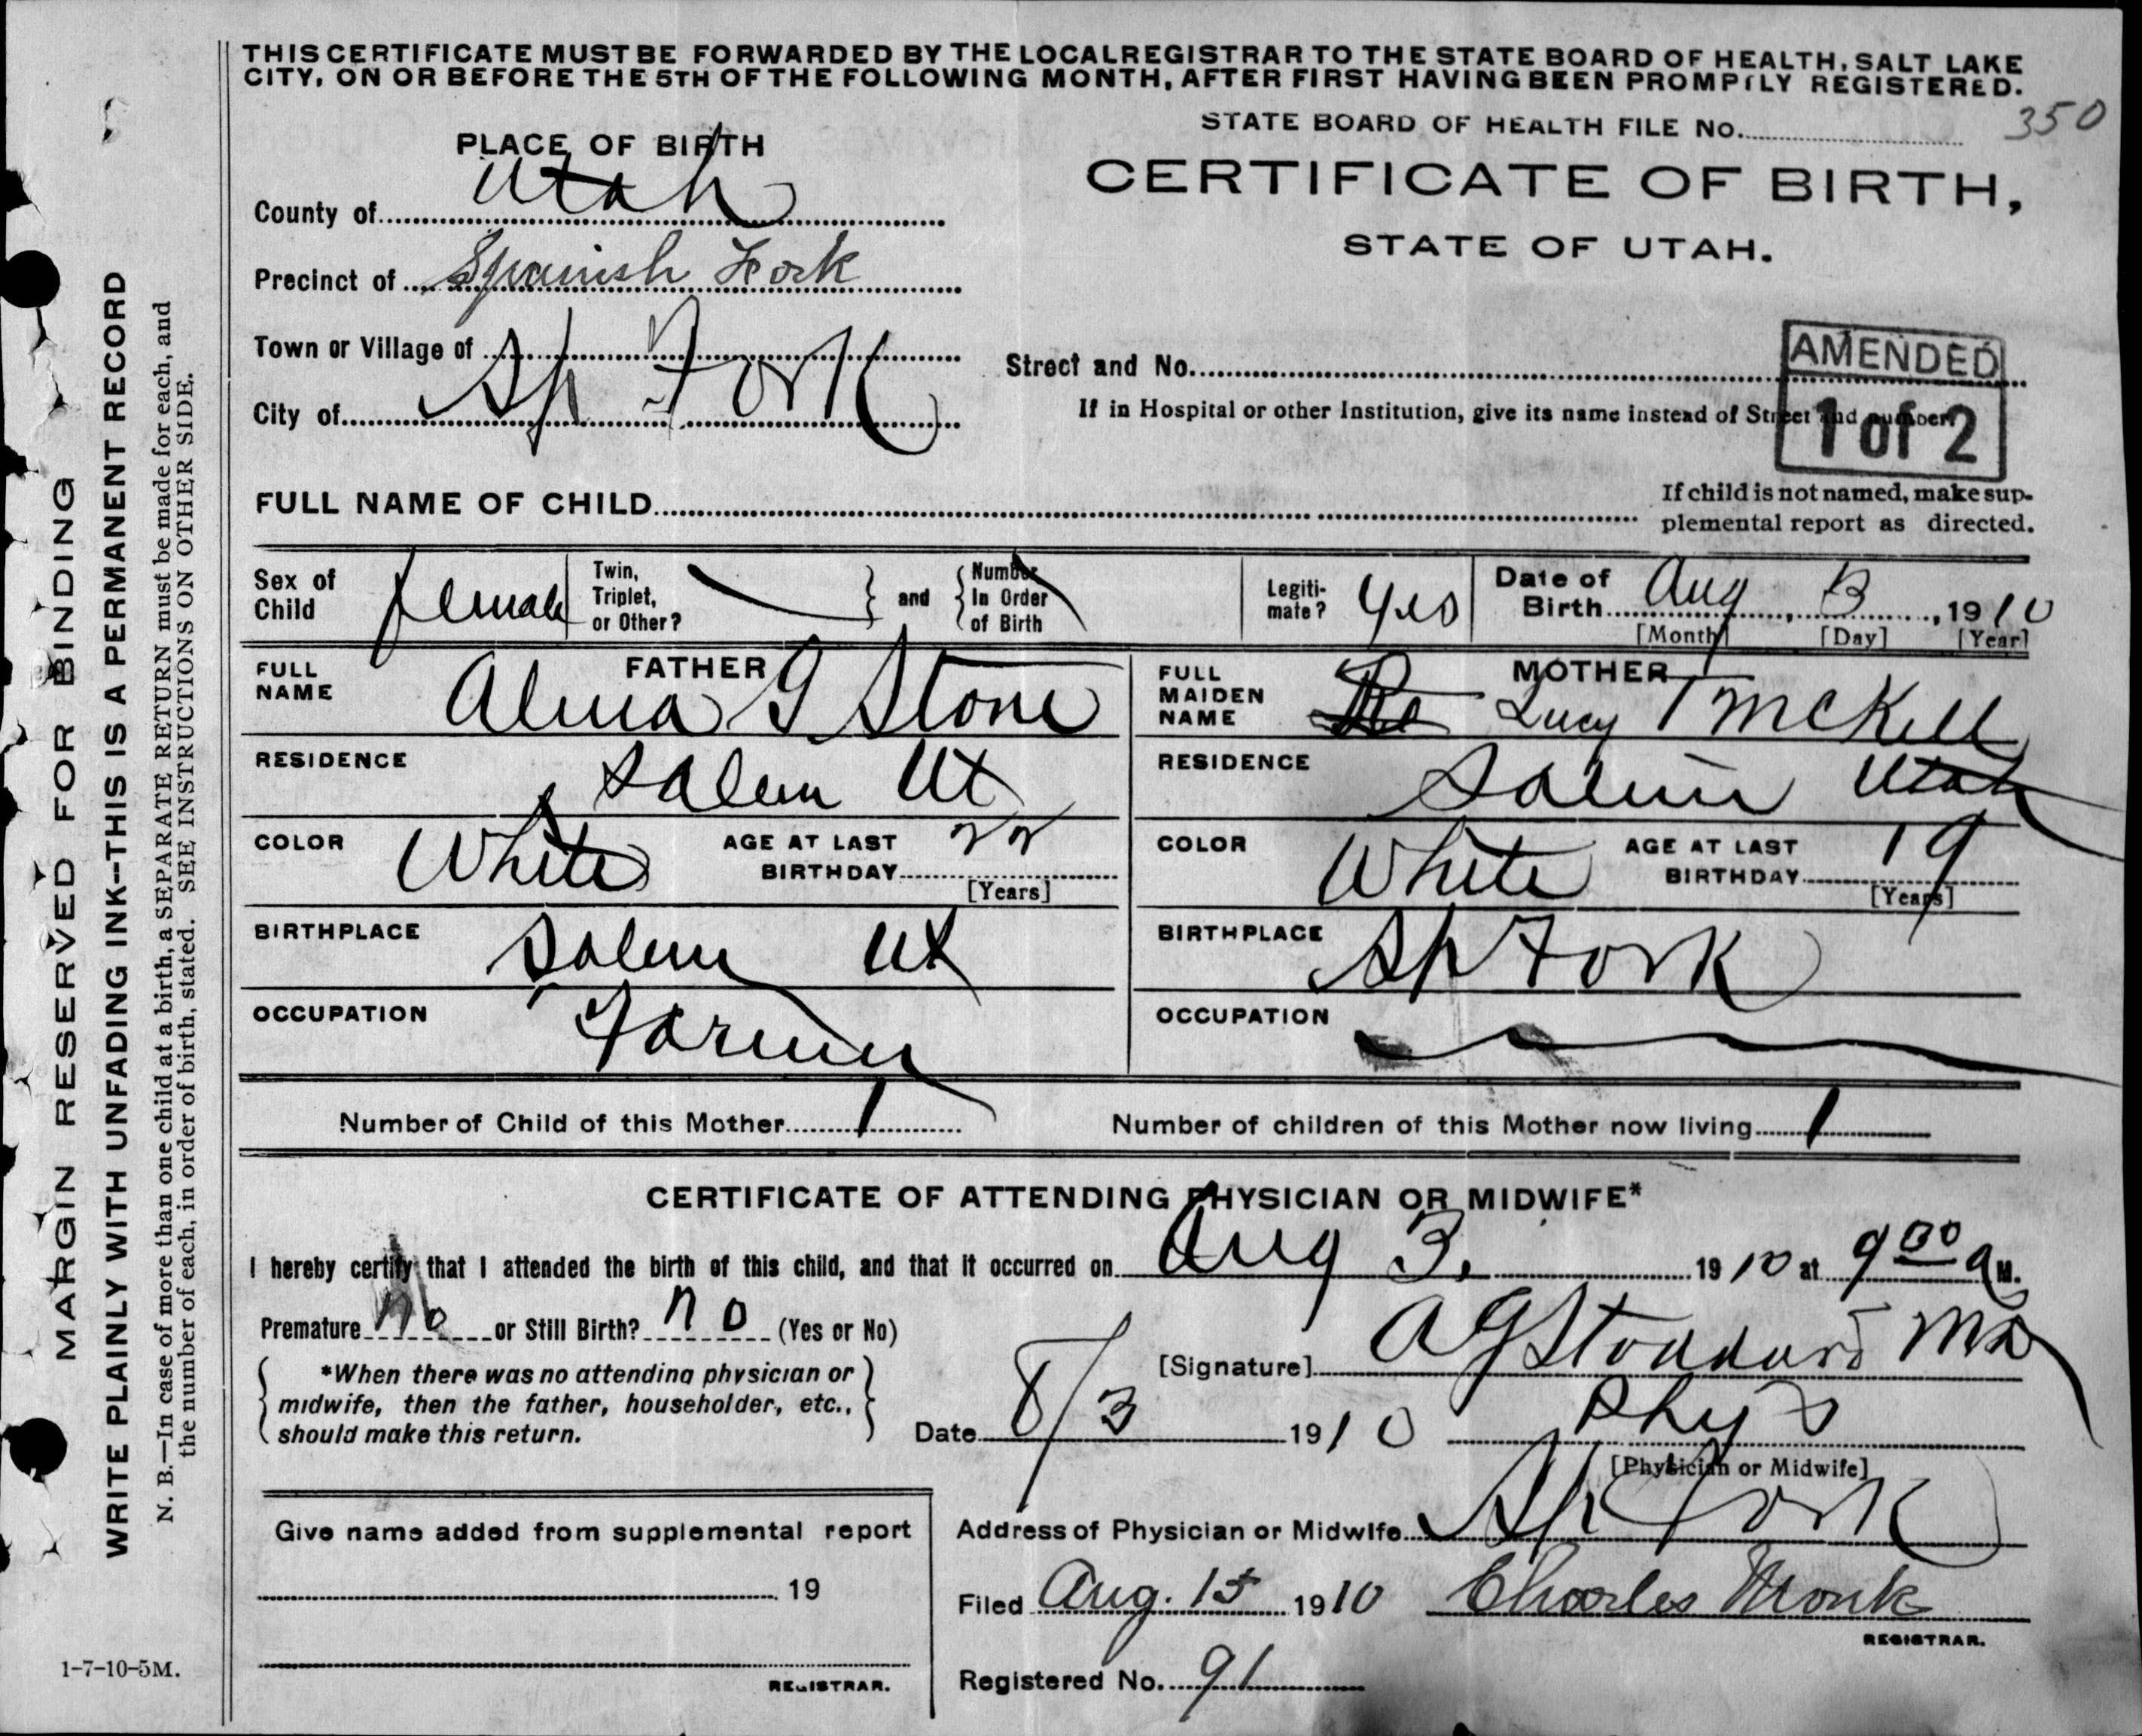 THIS CERTIFICATE MUST BE FORWARDED BY THE LOCAL REGISTRAR TO THE STATE BOARD OF HEALTH, SALT LAKE
CITY, ON OR BEFORE THE 5TH OF THE FOLLOWING MONTH, AFTER FIRST HAVING BEEN PROMPTLY REGISTERED.
STATE BOARD OF HEALTH FILE No. 350
CERTIFICATE OF BIRTH,
STATE OF UTAH.
PLACE OF BIRTH
County of Utah
Precinct of Spanish Fork
Town or Village of
City of Sp Fork
Street and No.
If in Hospital or other Institution, give its name instead of Street and number
AMENDED
1 of 2
FULL NAME OF CHILD
If child is not named, make sup-
plemental report as directed.
Sex of Child female
Twin, Triplet, or Other? and Number In Order of Birth
Legiti-mate? Yes
Date of Birth Aug 3, 1910
[Month] [Day] [Year]
FATHER
FULL NAME Alma G Stone
RESIDENCE Salem Ut
COLOR White AGE AT LAST BIRTHDAY 22
[Years]
BIRTHPLACE Salem Ut
OCCUPATION Farmer
MOTHER
FULL MAIDEN NAME Lucy T McKell
RESIDENCE Salem Utah
COLOR White AGE AT LAST BIRTHDAY 19
[Years]
BIRTHPLACE Sp Fork
OCCUPATION
Number of Child of this Mother 1 Number of children of this Mother now living 1
CERTIFICATE OF ATTENDING PHYSICIAN OR MIDWIFE*
I hereby certify that I attended the birth of this child, and that it occurred on Aug 3, 1910 at 9 00 a M.
Premature no or Still Birth? no (Yes or No)
*When there was no attending physician or
midwife, then the father, householder, etc.,
should make this return.
[Signature] A G Stoddard MD
Date 8/3 1910 Phys
[Physician or Midwife]
Give name added from supplemental report
19
REGISTRAR.
Address of Physician or Midwife Sp Fork
Filed Aug. 15 1910 Charles Monk
REGISTRAR.
Registered No. 91
MARGIN RESERVED FOR BINDING
WRITE PLAINLY WITH UNFADING INK--THIS IS A PERMANENT RECORD
N. B.—In case of more than one child at a birth, a SEPARATE RETURN must be made for each, and
the number of each, in order of birth, stated. SEE INSTRUCTIONS ON OTHER SIDE.
1-7-10-5M.